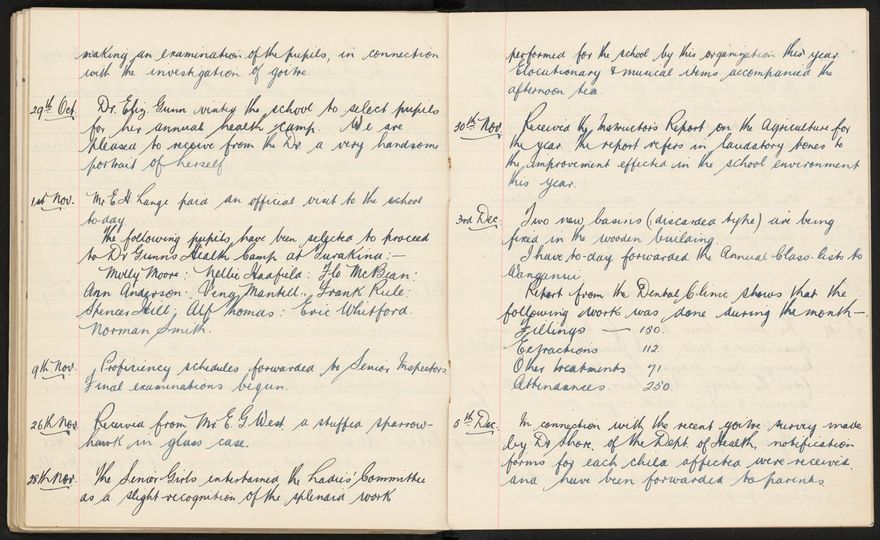 making an examination of the pupils, in connection
with the investigation of goitre.
29th Oct. Dr. Eliz Gunn visited the school to select pupils
for her annual health camp. We are
pleased to receive from the Dr. a very handsome
portrait of herself
1st Nov. Mr E. H. Lange paid an official visit to the school
to-day
The following pupils have been selected to proceed
to Dr Gunn's Health Camp at Turakina:-
Molly Moore: Nellie Haafield: Flo McBean:
Ann Anderson: Mantell: Frank Rule:
Spencer Hill: Alf Thomas: Eric Whitford
Norman Smith.
9th Nov. Proficiency schedules forwarded to Senior Inspectors
Final examinations begun.
26th Nov. Received from Mr E. G. West a stuffed sparrow-
hawk in glass case.
28th Nov. The Senior Girls entertained the Ladies' Committee
as a slight recognition of the splendid work
performed for the school by this organization this year.
Elocutionary & musical items accompanied the
afternoon tea.
30th Nov. Received the Instructor's Report on the Agriculture for
the year. The report refers in laudatory tones to
the improvement effected in the school environment
this year.
3rd Dec. Two new basins (discarded type) are being
fixed in the wooden building.
I have to-day forwarded the Annual Class-lists to
Wanganui.
Report from the Dental Clinic shows that the
following work was done during the month-
Fillings — 150.
Extractions 112.
Other treatments 71.
Attendances 250.
5th Dec. In connection with the recent goitre survey made
by Dr Shore, of the Dept. of Health, notification
forms for each child affected were received
and have been forwarded to parents.